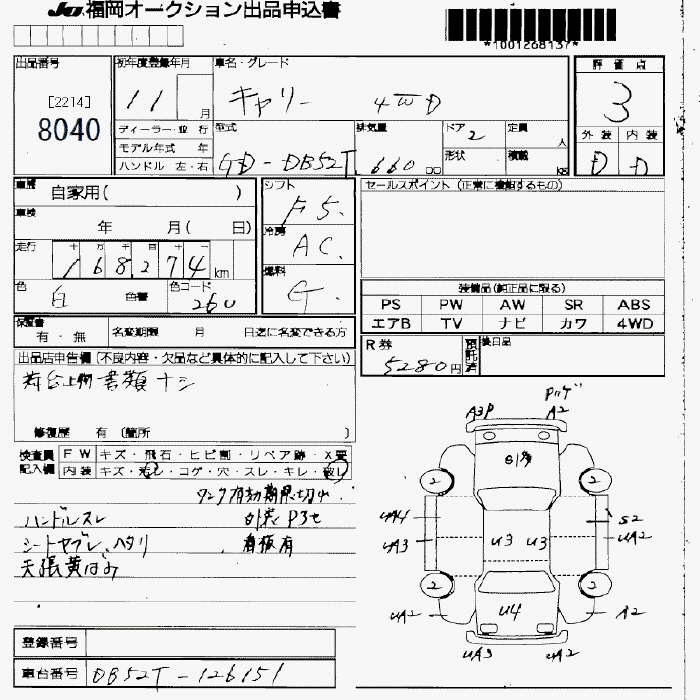 JU 福岡オークション出品申込書
*1001268137*
出品番号
[2214]
8040
初年度登録年月
11 月
車名・グレード
キャリー 4WD
評価点
3
外装 内装
D D
ディーラー・並行
モデル年式 年
ハンドル 左・右
型式
GD-DB52T
排気量
660 cc
ドア 2
形状
定員 人
積載 kg
車歴
自家用( )
車検
年 月( 日)
走行
十 万 千 百 十 一
168274 km
色
白 色替
色コード
26U
シフト
F5.
冷房
AC
燃料
G
セールスポイント (正常に機能するもの)
装備品(純正品に限る)
PS PW AW SR ABS
エアB TV ナビ カワ 4WD
保証書
有・無
名変期限 月 日迄に名変できる方
R券
5280円
預託済
後日品
出品店申告欄 (不良内容・欠品など具体的に記入して下さい)
荷台上物書類ナシ
修復歴 有 〔箇所 〕
検査員記入欄
FW キズ・飛石・ヒビ割・リペア跡・X要
内装 キズ・汚し・コゲ・穴・スレ・キレ・破し
タンク有効期限切レ
ハンドルスレ
シートヤブレ、ヘタリ
看板有
天張黄ばみ
A3P
A2
G1多
2
2
UA4
UA3
U3
U3
S2
UA2
2
2
UA2
U4
A2
UA3
UA2
登録番号
車台番号 DB52T-126151